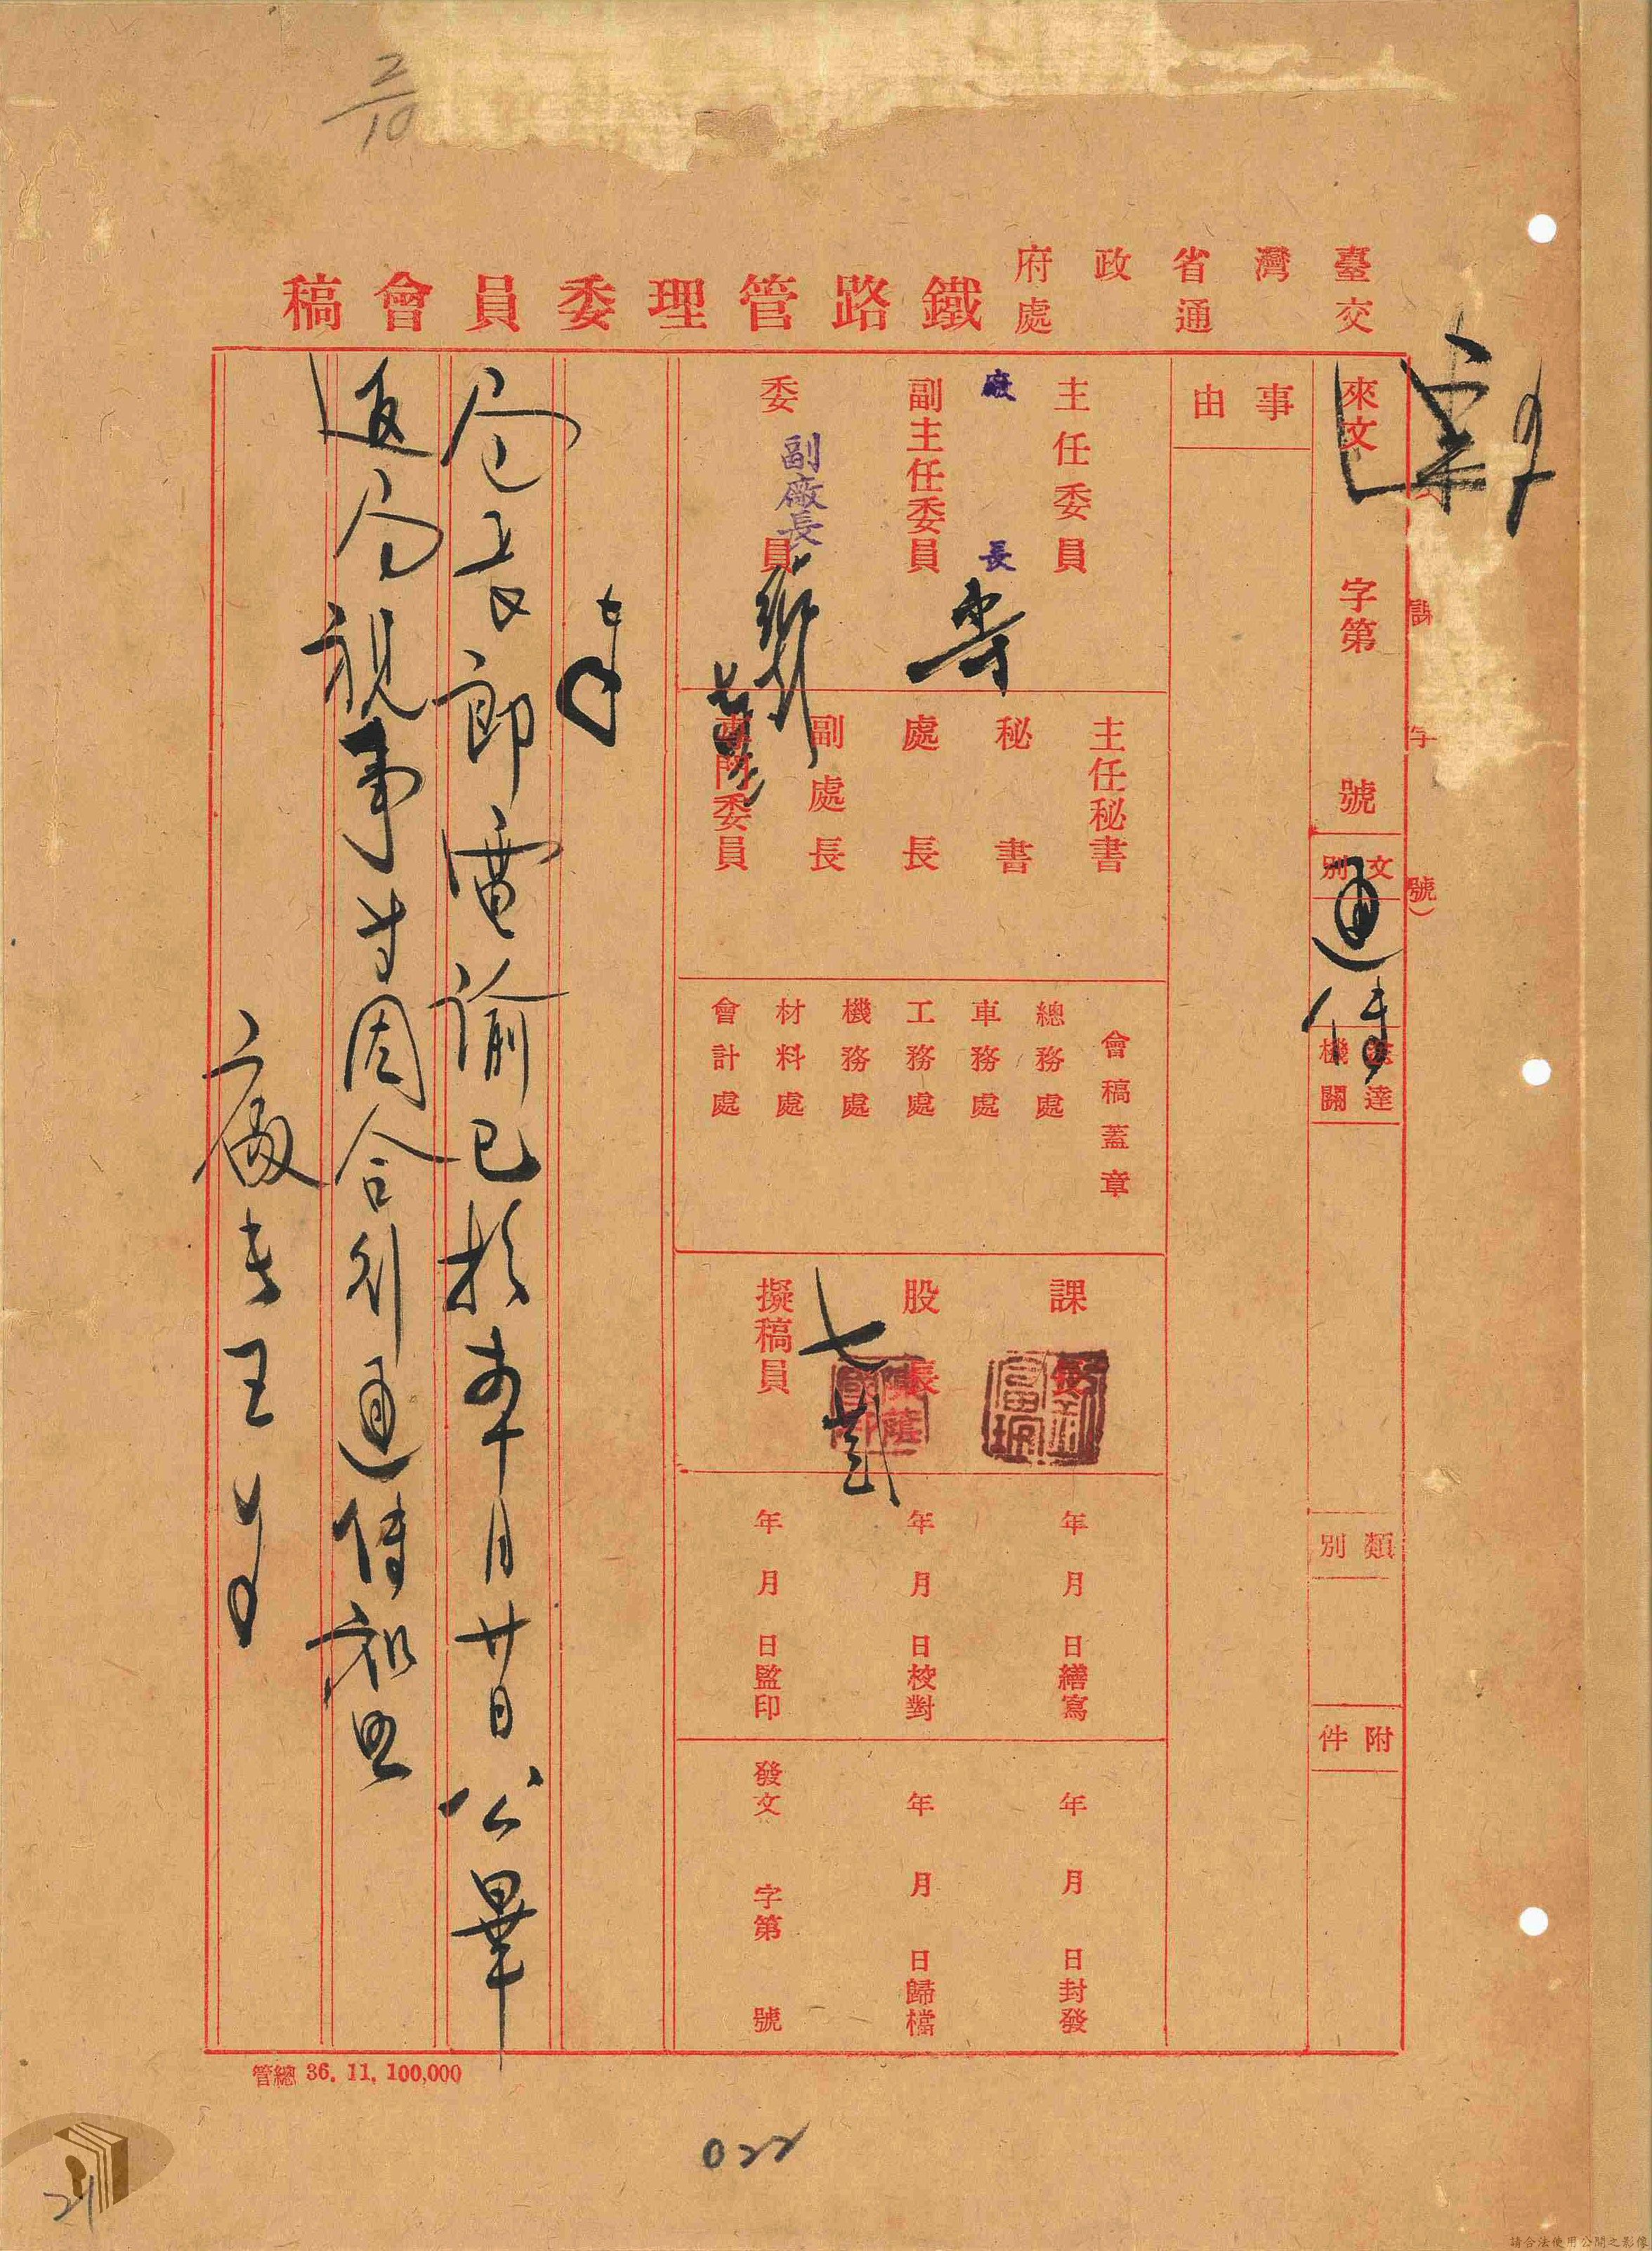 2/10
臺灣省政府
交通處
鐵路管理委員會稿
來文 字第 號
文別
通傳
送達機關
類別
附件
事由
主任委員
廠長
副主任委員
委員
副廠長
主任秘書
秘書
處長
副處長
專門委員
會稿蓋章
總務處
車務處
工務處
機務處
材料處
會計處
課長
股長
擬稿員
年 月 日繕寫
年 月 日校對
年 月 日監印
年 月 日封發
年 月 日歸檔
發文 字第 號
局長郎電諭已於本月廿日公畢
返局視事等因合行通傳知照
廠長王
管總 36. 11. 100,000
022
21
請合法使用公開之影像